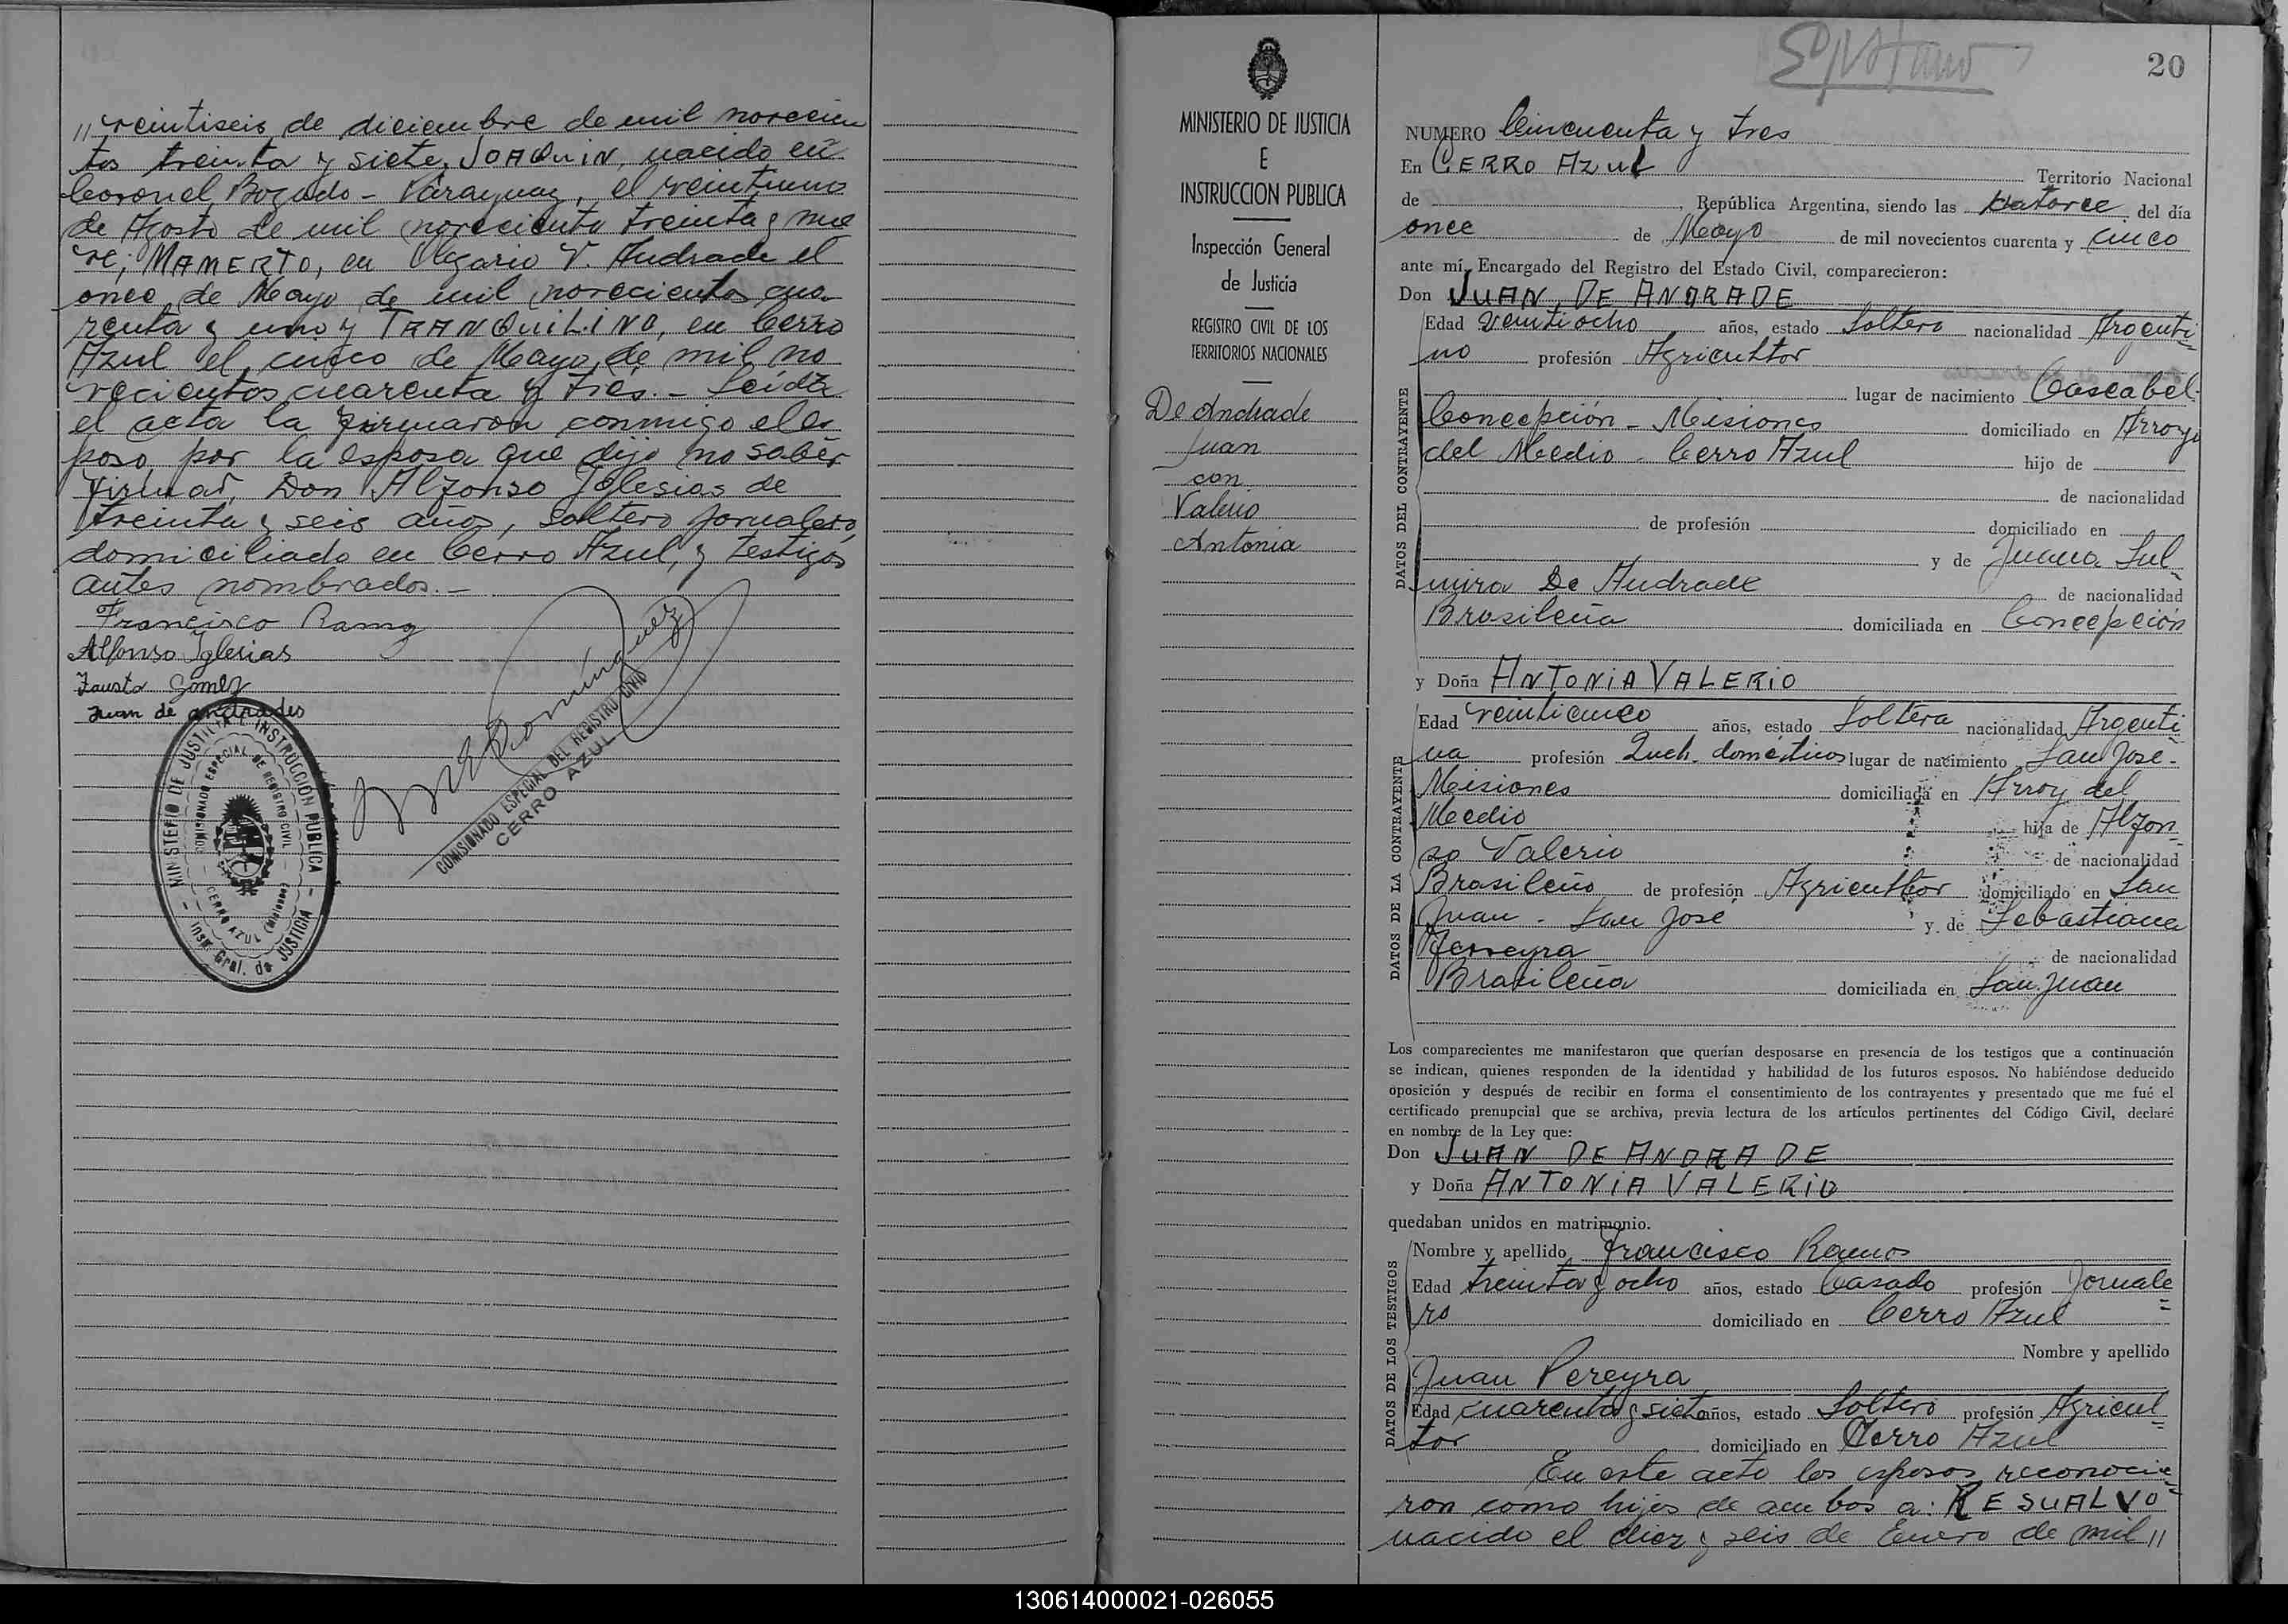 // veintiseis de diciembre de mil novecien
tos treinta y siete, JOAQUIN, nacido en
Coronel Bogado - Paraguay, el veintiuno
de Agosto de mil novecientos treinta y nue
ve; MAMERTO, en Olegario V. Andrade el
once de Mayo de mil novecientos cua-
renta y uno y TRANQUILINO, en Cerro
Azul el cinco de Mayo de mil no
vecientos cuarenta y tres.- Leida
el acta la firmaron conmigo el es
poso, por la esposa que dijo no saber
firmar, Don Alfonso Iglesias de
treinta y seis años, soltero jornalero,
domiciliado en Cerro Azul, y testigos
antes nombrados.-
Francisco Ramos
Alfonso Iglesias
Fausto Gomez
Juan de andrades
MINISTERIO DE JUSTICIA E INSTRUCCIÓN PÚBLICA
COMISIONADO ESPECIAL DE REGISTRO CIVIL
CERRO AZUL (Misiones)
Insp. Gral. de JUSTICIA
COMISIONADO ESPECIAL DEL REGISTRO CIVIL
CERRO AZUL
MINISTERIO DE JUSTICIA
E
INSTRUCCION PUBLICA
Inspección General
de Justicia
REGISTRO CIVIL DE LOS
TERRITORIOS NACIONALES
De Andrade
Juan
con
Valerio
Antonia
20
NUMERO Cincuenta y tres
En CERRO AZUL Territorio Nacional
de , República Argentina, siendo las catorce del día
once de Mayo de mil novecientos cuarenta y cinco
ante mí, Encargado del Registro del Estado Civil, comparecieron:
Don JUAN DE ANDRADE
DATOS DEL CONTRAYENTE
Edad veintiocho años, estado Soltero nacionalidad Argenti
no profesión Agricultor
lugar de nacimiento Cascabel-
Concepción - Misiones domiciliado en Arroyo
del Medio - Cerro Azul hijo de
de nacionalidad
de profesión domiciliado en
y de Juana Sul
mira De Andrade de nacionalidad
Brasileña domiciliada en Concepción
y Doña ANTONIA VALERIO
DATOS DE LA CONTRAYENTE
Edad veinticinco años, estado Soltera nacionalidad Argenti
na profesión Queh. domésticos lugar de nacimiento San José-
Misiones domiciliada en Arroy del
Medio hija de Alfon
so Valerio de nacionalidad
Brasileño de profesión Agricultor domiciliado en San
Juan - San José y de Sebastiana
Ferreyra de nacionalidad
Brasileña domiciliada en San Juan
Los comparecientes me manifestaron que querían desposarse en presencia de los testigos que a continuación
se indican, quienes responden de la identidad y habilidad de los futuros esposos. No habiéndose deducido
oposición y después de recibir en forma el consentimiento de los contrayentes y presentado que me fué el
certificado prenupcial que se archiva, previa lectura de los artículos pertinentes del Código Civil, declaré
en nombre de la Ley que:
Don JUAN DE ANDRADE
y Doña ANTONIA VALERIO
quedaban unidos en matrimonio.
DATOS DE LOS TESTIGOS
Nombre y apellido Francisco Ramos
Edad treinta y ocho años, estado Casado profesión Jornale
ro domiciliado en Cerro Azul
Nombre y apellido
Juan Pereyra
Edad cuarenta y siete años, estado Soltero profesión Agricul
tor domiciliado en Cerro Azul
En este acto los esposos reconocie
ron como hijos de ambos a: RESUALVO
nacido el diez y seis de Enero de mil //
130614000021-026055